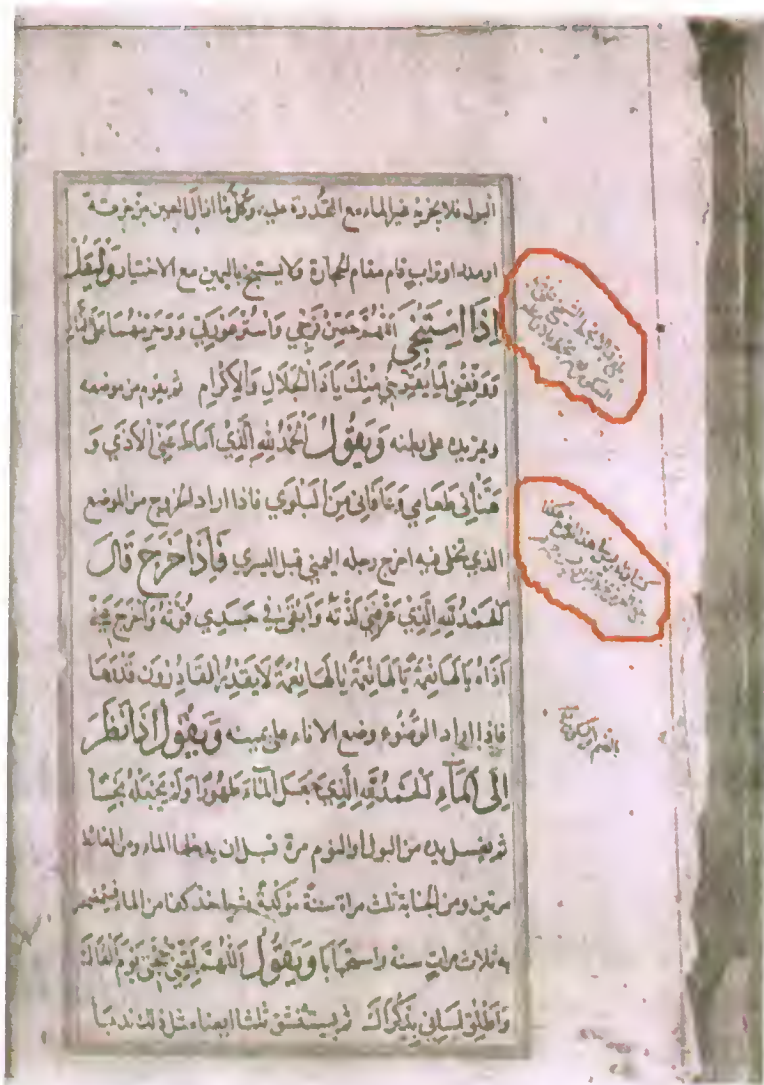 البول فلا يجزيه غير الماء مع القدرة عليه وكل ما ازال العين من خرقة
او مدر او تراب قام مقام الحجارة ولا يستنجي باليمين مع الاختيار وليقل
اذا استنجي اللهم حصن فرجي واستر عورتي وحرمهما على النار
ووفقني لما يقربني منك يا ذا الجلال والاكرام ثم يقوم من موضعه
ويمر يده على بطنه ويقول الحمد لله الذي اماط عني الاذي و
هنأني طعامي وعافاني من البلوي فاذا اراد الخروج من الموضع
الذي تخلى فيه اخرج رجله اليمني قبل اليسري فاذا خرج قال
الحمد لله الذي عرفني لذته وابقي في جسدي قوته واخرج عني
اذاه يالها نعمة يالها نعمة يالها نعمة لا يقدر القادرون قدرها
فاذا اراد الوضوء وضع الاناء على يمينه ويقول اذا نظر
الى الماء الحمد لله الذي جعل الماء طهورا ولم يجعله نجسا
ثم يغسل يده من البول والنوم مرة قبل ان يدخلها الماء ومن الغائط
مرتين ومن الجنابة ثلث مرات سنة مؤكدة ثم ياخذ كفا من الماء فيتمضمض
به ثلاث مرات سنة واستحبابا ويقول اللهم لقني حجتي يوم القاك
واطلق لساني بذكراك ثم يستنشق ثلثا ايضا مثل ذلك ندبا